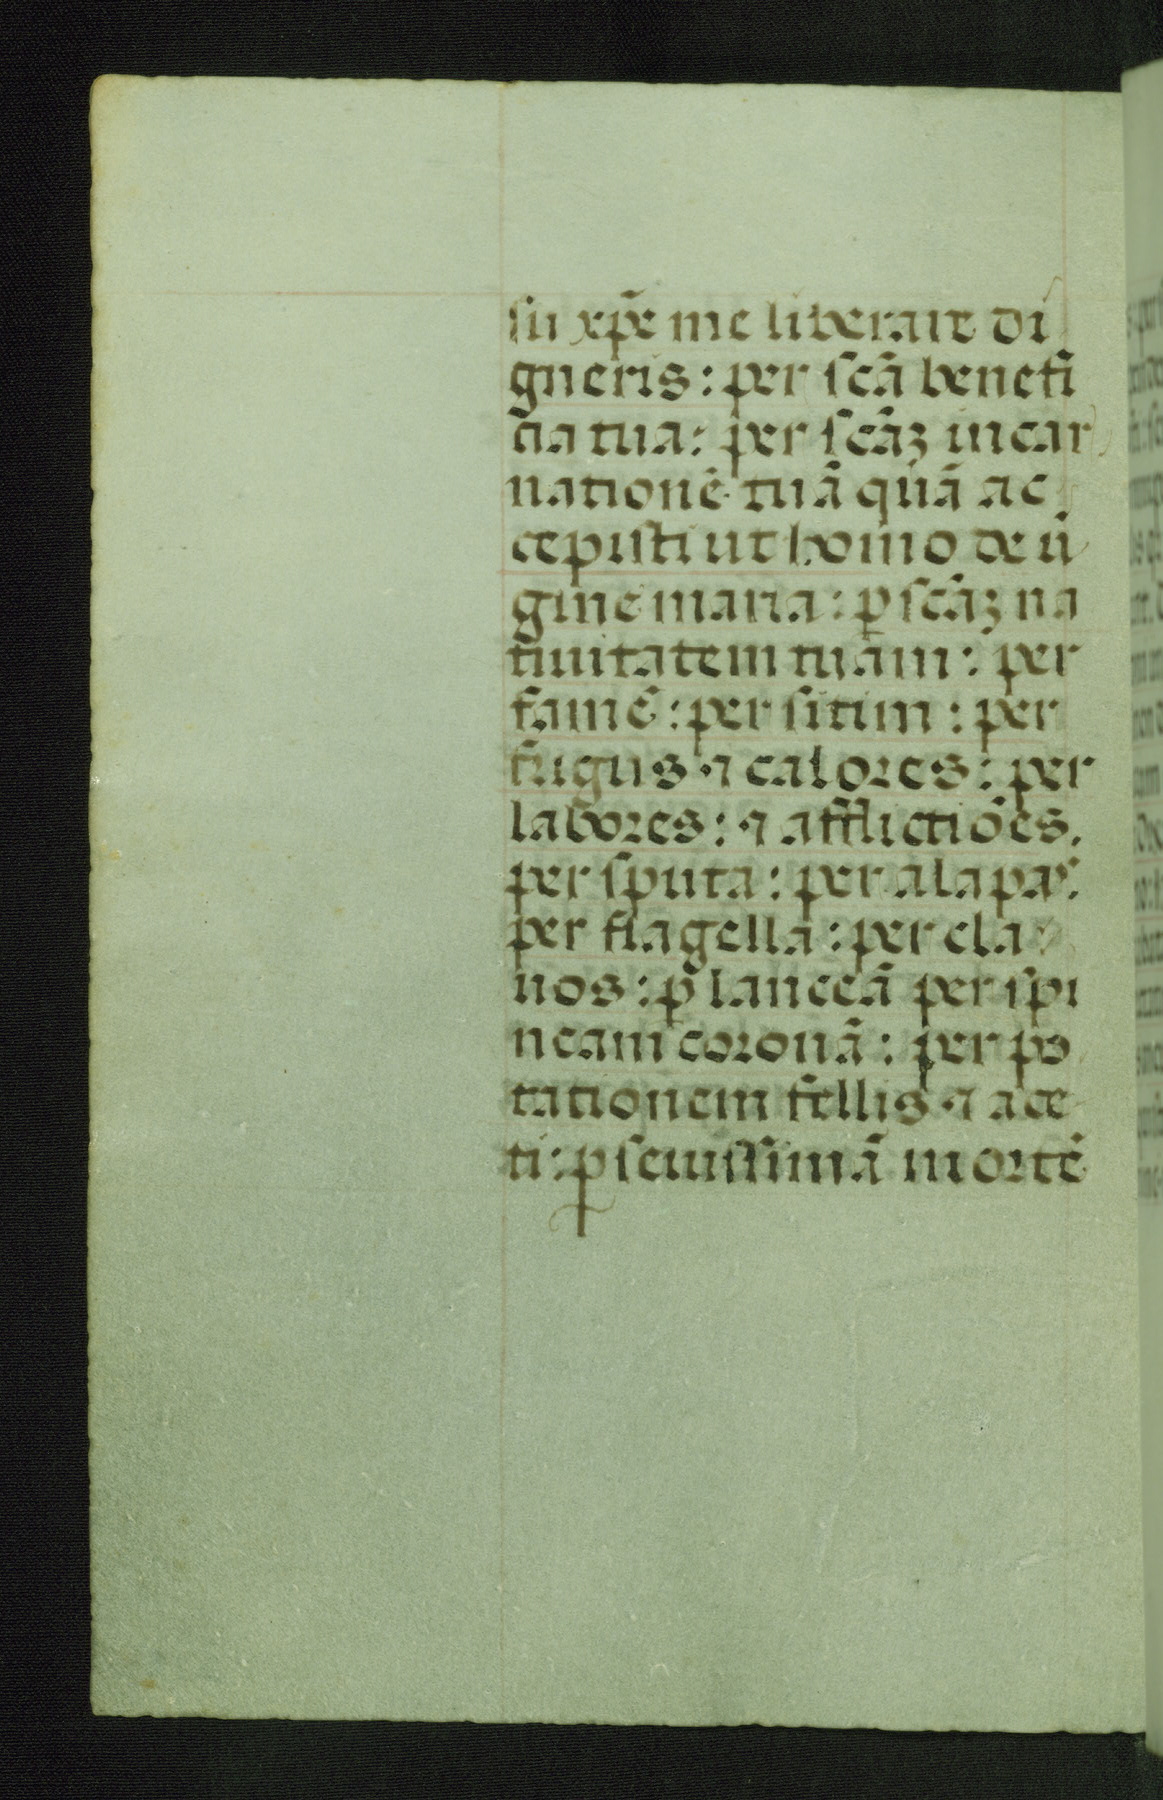 su xp̄e me liberare di
gneris: per scā benefi
cia tua: per scāꝫ incar
nationē tuā quā ac
cepisti ut homo de ū
gine maria: ꝑ scāꝫ na
tiuitatem tuam: per
famē: per sitim: per
frigus ⁊ calores: per
labores: ⁊ afflictiōes.
per sputa: per alapas.
per flagella: per cla
uos: ꝑ lanceā per spi
neam coronā: per po
tationem fellis ⁊ ace
ti: ꝑ seuissimā mortē